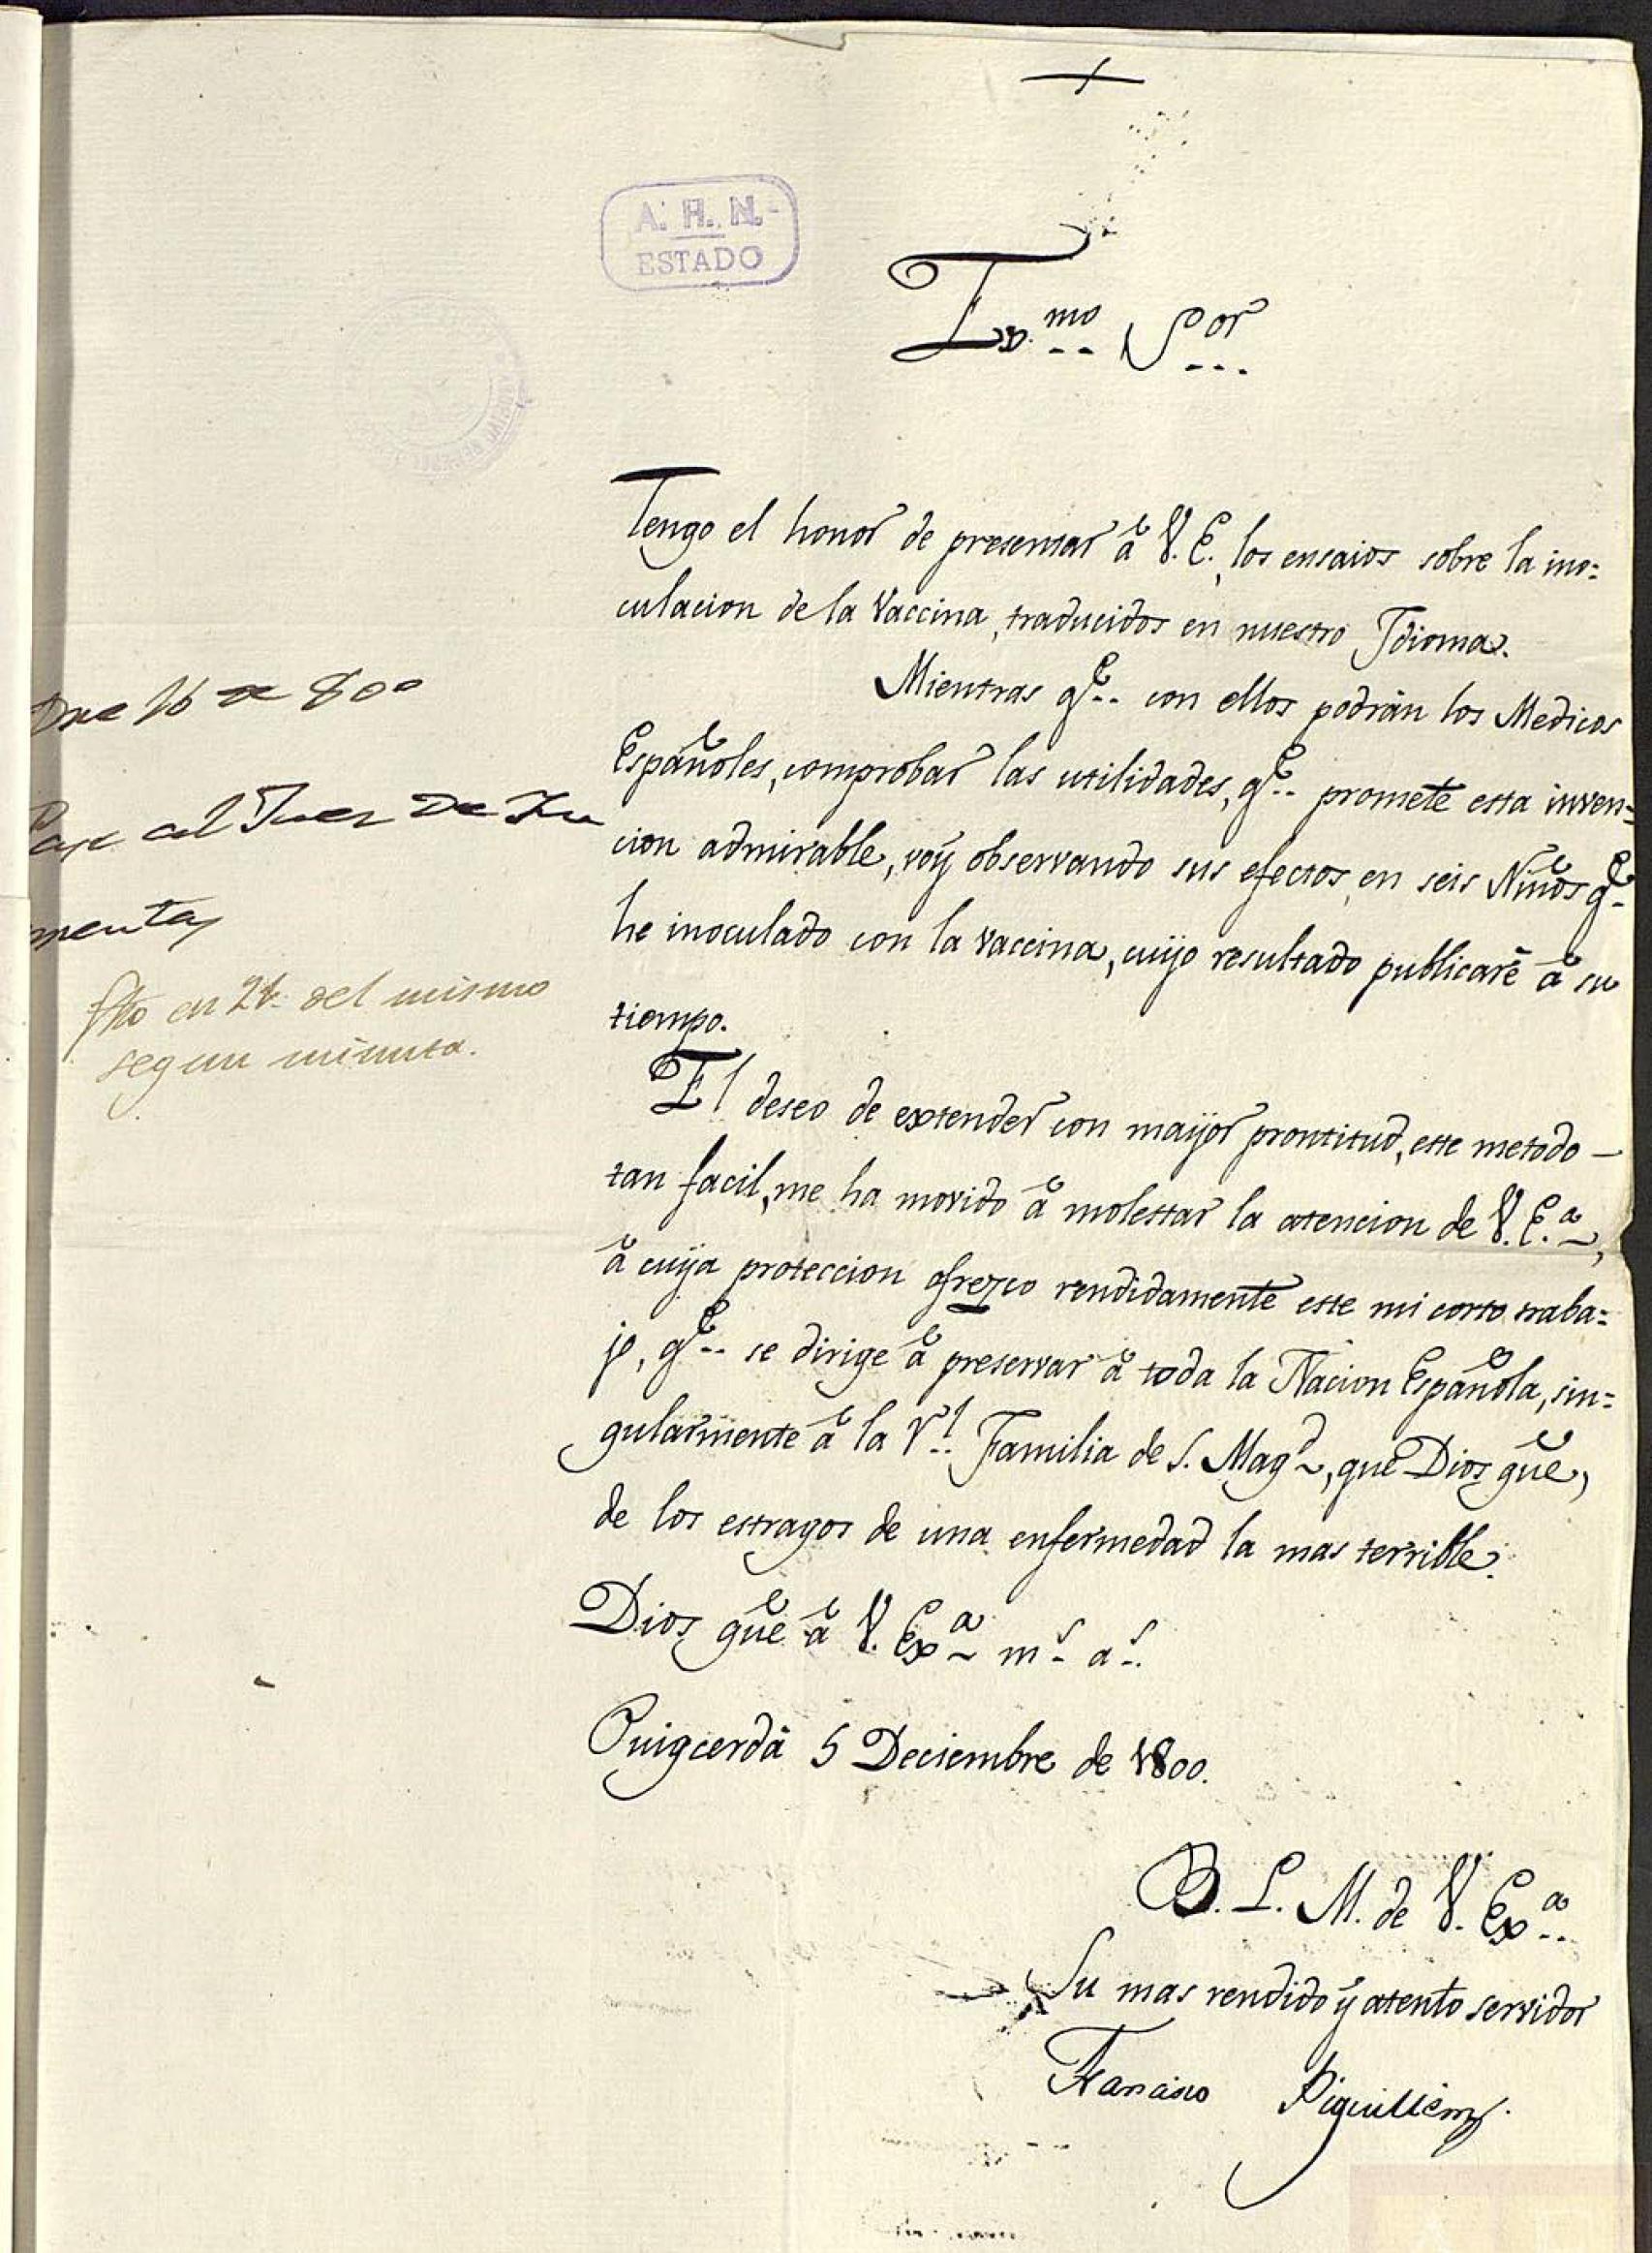 A. H. N.
ESTADO
Exmo Sor
Tengo el honor de presentar â V. E. los ensaios sobre la ino=
culacion de la Vaccina, traducidos en nuestro Idioma.
Mientras qe con ellos podrân los Medicos
Españoles, comprobar las utilidades, qe promete esta inven=
cion admirable, voÿ observando sus efectos, en seis Niños qe
he inoculado con la vaccina, cuÿo resultado publicarê â su
tiempo.
El deseo de extender con maÿor prontitud, este metodo –
tan facil, me ha movido â molestar la atencion de V. E.a,
â cuÿa proteccion ofrezco rendidamente este mi corto traba=
jo, qe se dirige â preservar â toda la Nacion Española, sin=
gularmente â la Rl Familia de S. Magd, que Dios gûe,
de los estragos de una enfermedad la mas terrible.
Dios gûe â V. Exa ms as.
Puigcerdâ 5 Deciembre de 1800.
B. L. M. de V. Exa
Su mas rendido ÿ atento servidor
Francisco Piguillem.
Dre 16 de 800
Pase al Juez de Im
prentas
fho en 21 del mismo
segun minuta.